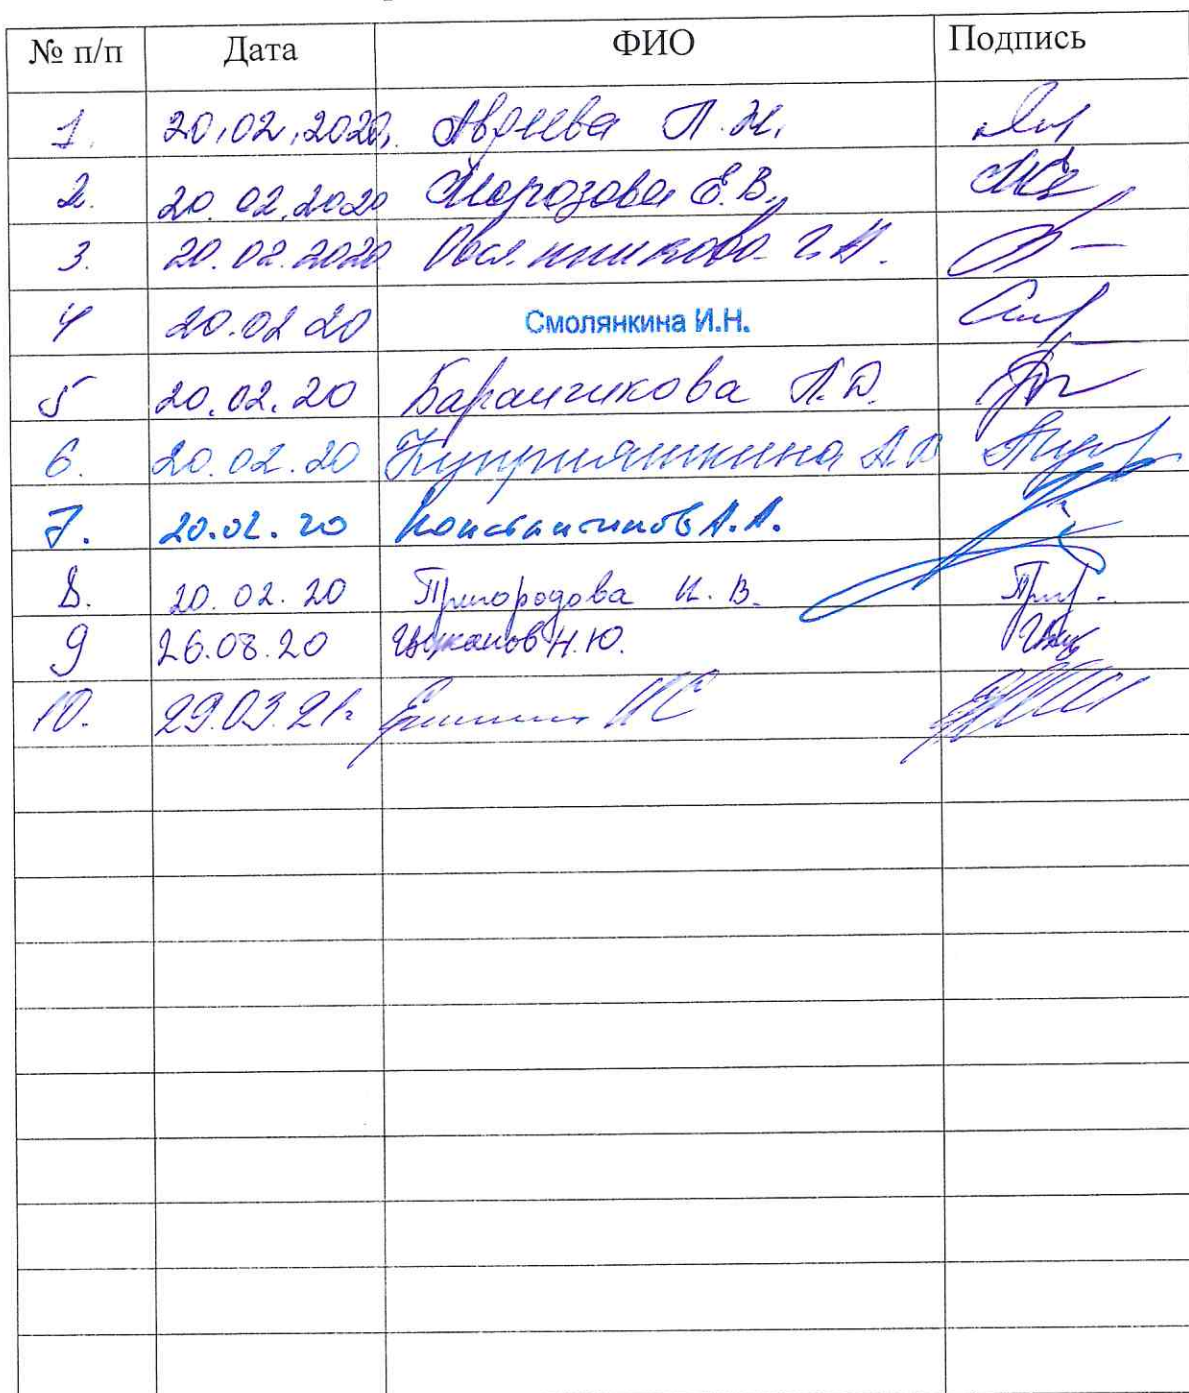 № п/п Дата ФИО Подпись
1. 20.02.2020. Авреева Л.Н.
2. 20.02.2020 Морозова Е.В.
3. 20.02.2020 Овсянникова Г.Н.
4 20.02 20 Смолянкина И.Н.
5 20.02.20 Баранчикова Л.Д.
6. 20.02.20 Куприяшкина А.В
7. 20.02.20 Константинов А.А.
8. 20.02.20 Пригородова И.В.
9 26.08.20 Цыканов Н.Ю.
10. 29.03.21г